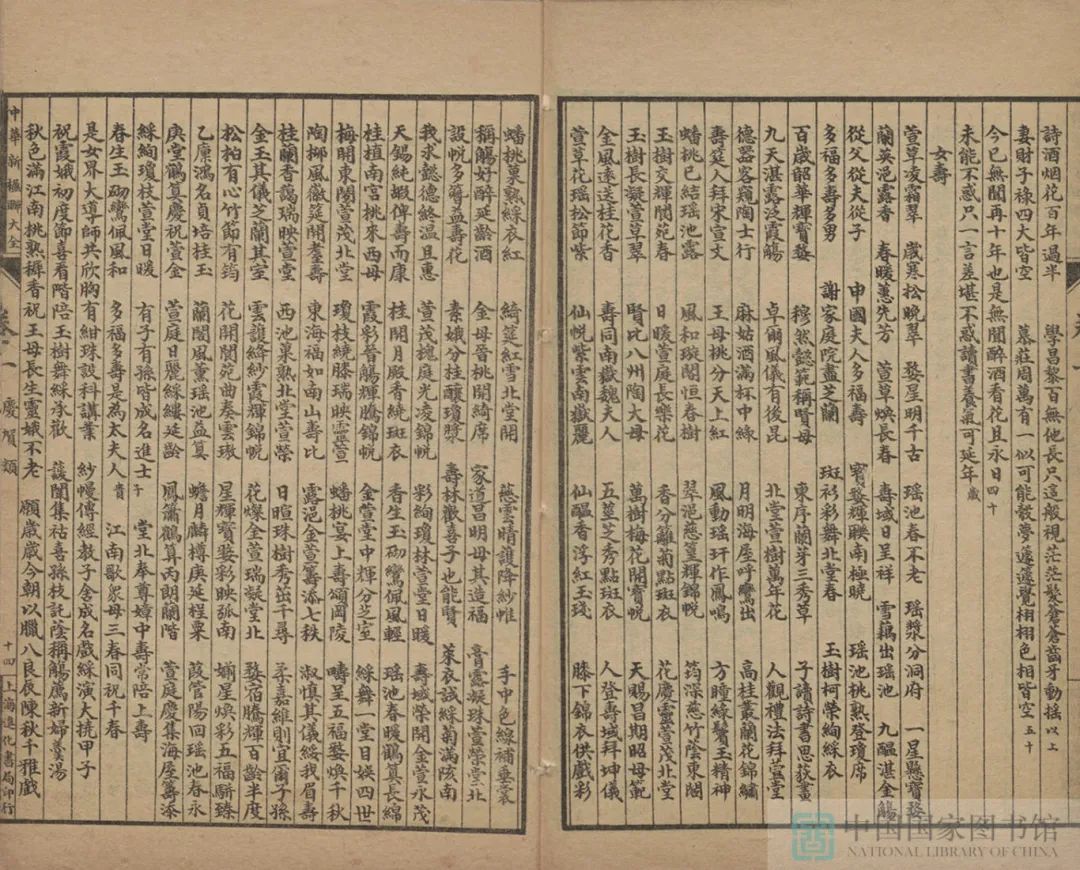 詩酒烟花百年過半　學昌黎百無他長只這般視茫茫髮蒼蒼齒牙動搖以上
妻財子祿四大皆空　慕莊周萬有一似可能彀夢蘧蘧覺栩栩色相皆空五十
今已無聞再十年也是無聞醉酒看花且永日四十
未能不惑只一言差堪不惑讀書養氣可延年歲
女壽
萱草凌霜翠　歲寒松晚翠　婺星明千古　瑤池春不老　瑶漿分洞府　一星懸寶婺
蘭英浥露香　春暖蕙先芳　萱草煥長春　壽域日呈祥　雪藕出瑤池　九醞湛金觴
從父從夫從子　申國夫人多福壽　寶婺輝映南極曉　瑤池桃熟登瓊席
多福多壽多男　謝家庭院盡芝蘭　斑衫彩舞北堂春　玉樹柯榮絢綵衣
百歲韶華輝寶婺　穆然懿範稱賢母　東序蘭芽三秀草　子讀詩書思荻畫
九天湛露泛霞觴　卓爾風儀有後昆　北堂萱樹萬年花　人觀禮法拜萱堂
德器客窺陶士行　麻姑酒滿杯中綠　月明海屋呼鸞出　高桂叢蘭花錦繡
壽筵人拜宋宣文　王母桃分天上紅　風動瑤玕作鳳鳴　方瞳綠鬢玉精神
蟠桃已結瑤池露　風和璇閣恒春樹　翠浥慈篁輝錦帨　筠深慈竹蔭東閣
玉樹交輝閬苑春　日暖萱庭長樂花　香分籬菊點斑衣　花慶靈萱茂北堂
玉樹長凝萱草翠　賢比八州陶大母　萬樹梅花開寶帨　天賜昌期昭母範
金風遠送桂花香　壽同南嶽魏夫人　五莖芝秀點斑衣　人登壽域拜坤儀
萱草花瑤松節紫　仙帨紫雲南嶽麗　仙醞香浮紅玉琖　膝下錦衣供戲彩
蟠桃菓熟綵衣紅　綺筵紅雪北堂開　慈雲晴護降紗帷　手中色線補垂裳
稱觴好醉延齡酒　金母昔桃開綺席　家道昌明母其造福　膏露凝珠萱榮堂北
設帨多簪益壽花　素娥分桂釀瓊漿　壽林歡喜子也能賢　萊衣試綵菊滿陔南
我求懿德終温且惠　萱茂槐庭光凌錦帨　彩絢瓊林萱堂日暖　壽域榮開金萱永茂
天錫純嘏俾壽而康　桂開月殿香繞斑衣　香生玉砌鸞佩風輕　瑶池春暖鶴算長綿
桂植南宫桃來西母　霞彩晉觴輝騰錦帨　金萱堂中輝分芝室　綵舞一堂日娛四世
梅開東閣萱茂北堂　瓊枝繞膝瑞映靈萱　蟠桃宴上壽頌岡陵　疇呈五福婺煥千秋
陶柳風徽筵開耄壽　東海福如南山壽比　露浥金萱籌添七秩　淑慎其儀綏我眉壽
桂蘭香藹瑞映萱堂　西池菓熟北堂萱榮　日暄珠樹秀茁千尋　柔嘉維則宜爾子孫
金玉其儀芝蘭其室　雲護絳紗霞輝錦帨　花燦金萱瑞凝堂北　婺宿騰輝百齡半度
松柏有心竹節有筠　花開閬苑曲奏雲璈　星輝寶婺彩映弧南　嫺星煥彩五福騈臻
乙廉鴻名貟培桂玉　蘭閣風薰瑤池益算　蟾月麟樽庚延桯粟　葭管陽回瑤池春永
庚堂鶴算慶祝萱金　萱庭日麗綵縷延齡　鳳簫鶴算丙朗蘭階　萱庭慶集海屋籌添
綵絢瓊枝萱堂日暖　有子有孫皆成名進士午　堂北奉尊嫜中壽常陪上壽
春生玉砌鸞佩風和　多福多壽是為太夫人貴　江南歌衆母三春同祝千春
是女界大導師共欣胸有紺珠設科講業　紗幔傅經教子金成名戲綵演大撓甲子
祝霞娥初度節喜看階陪玉樹舞綵承歡　護闈集祜喜孫枝託蔭稱觴薦新婦羹湯
秋色滿江南桃熟樨香祝王母長生靈娥不老　願歲歲今朝以臘八良夜陳秋千雅戲
中華新楹聯大全　卷四　一　慶賀類　十四　上海進化書局印行
中国国家图书馆
NATIONAL LIBRARY OF CHINA